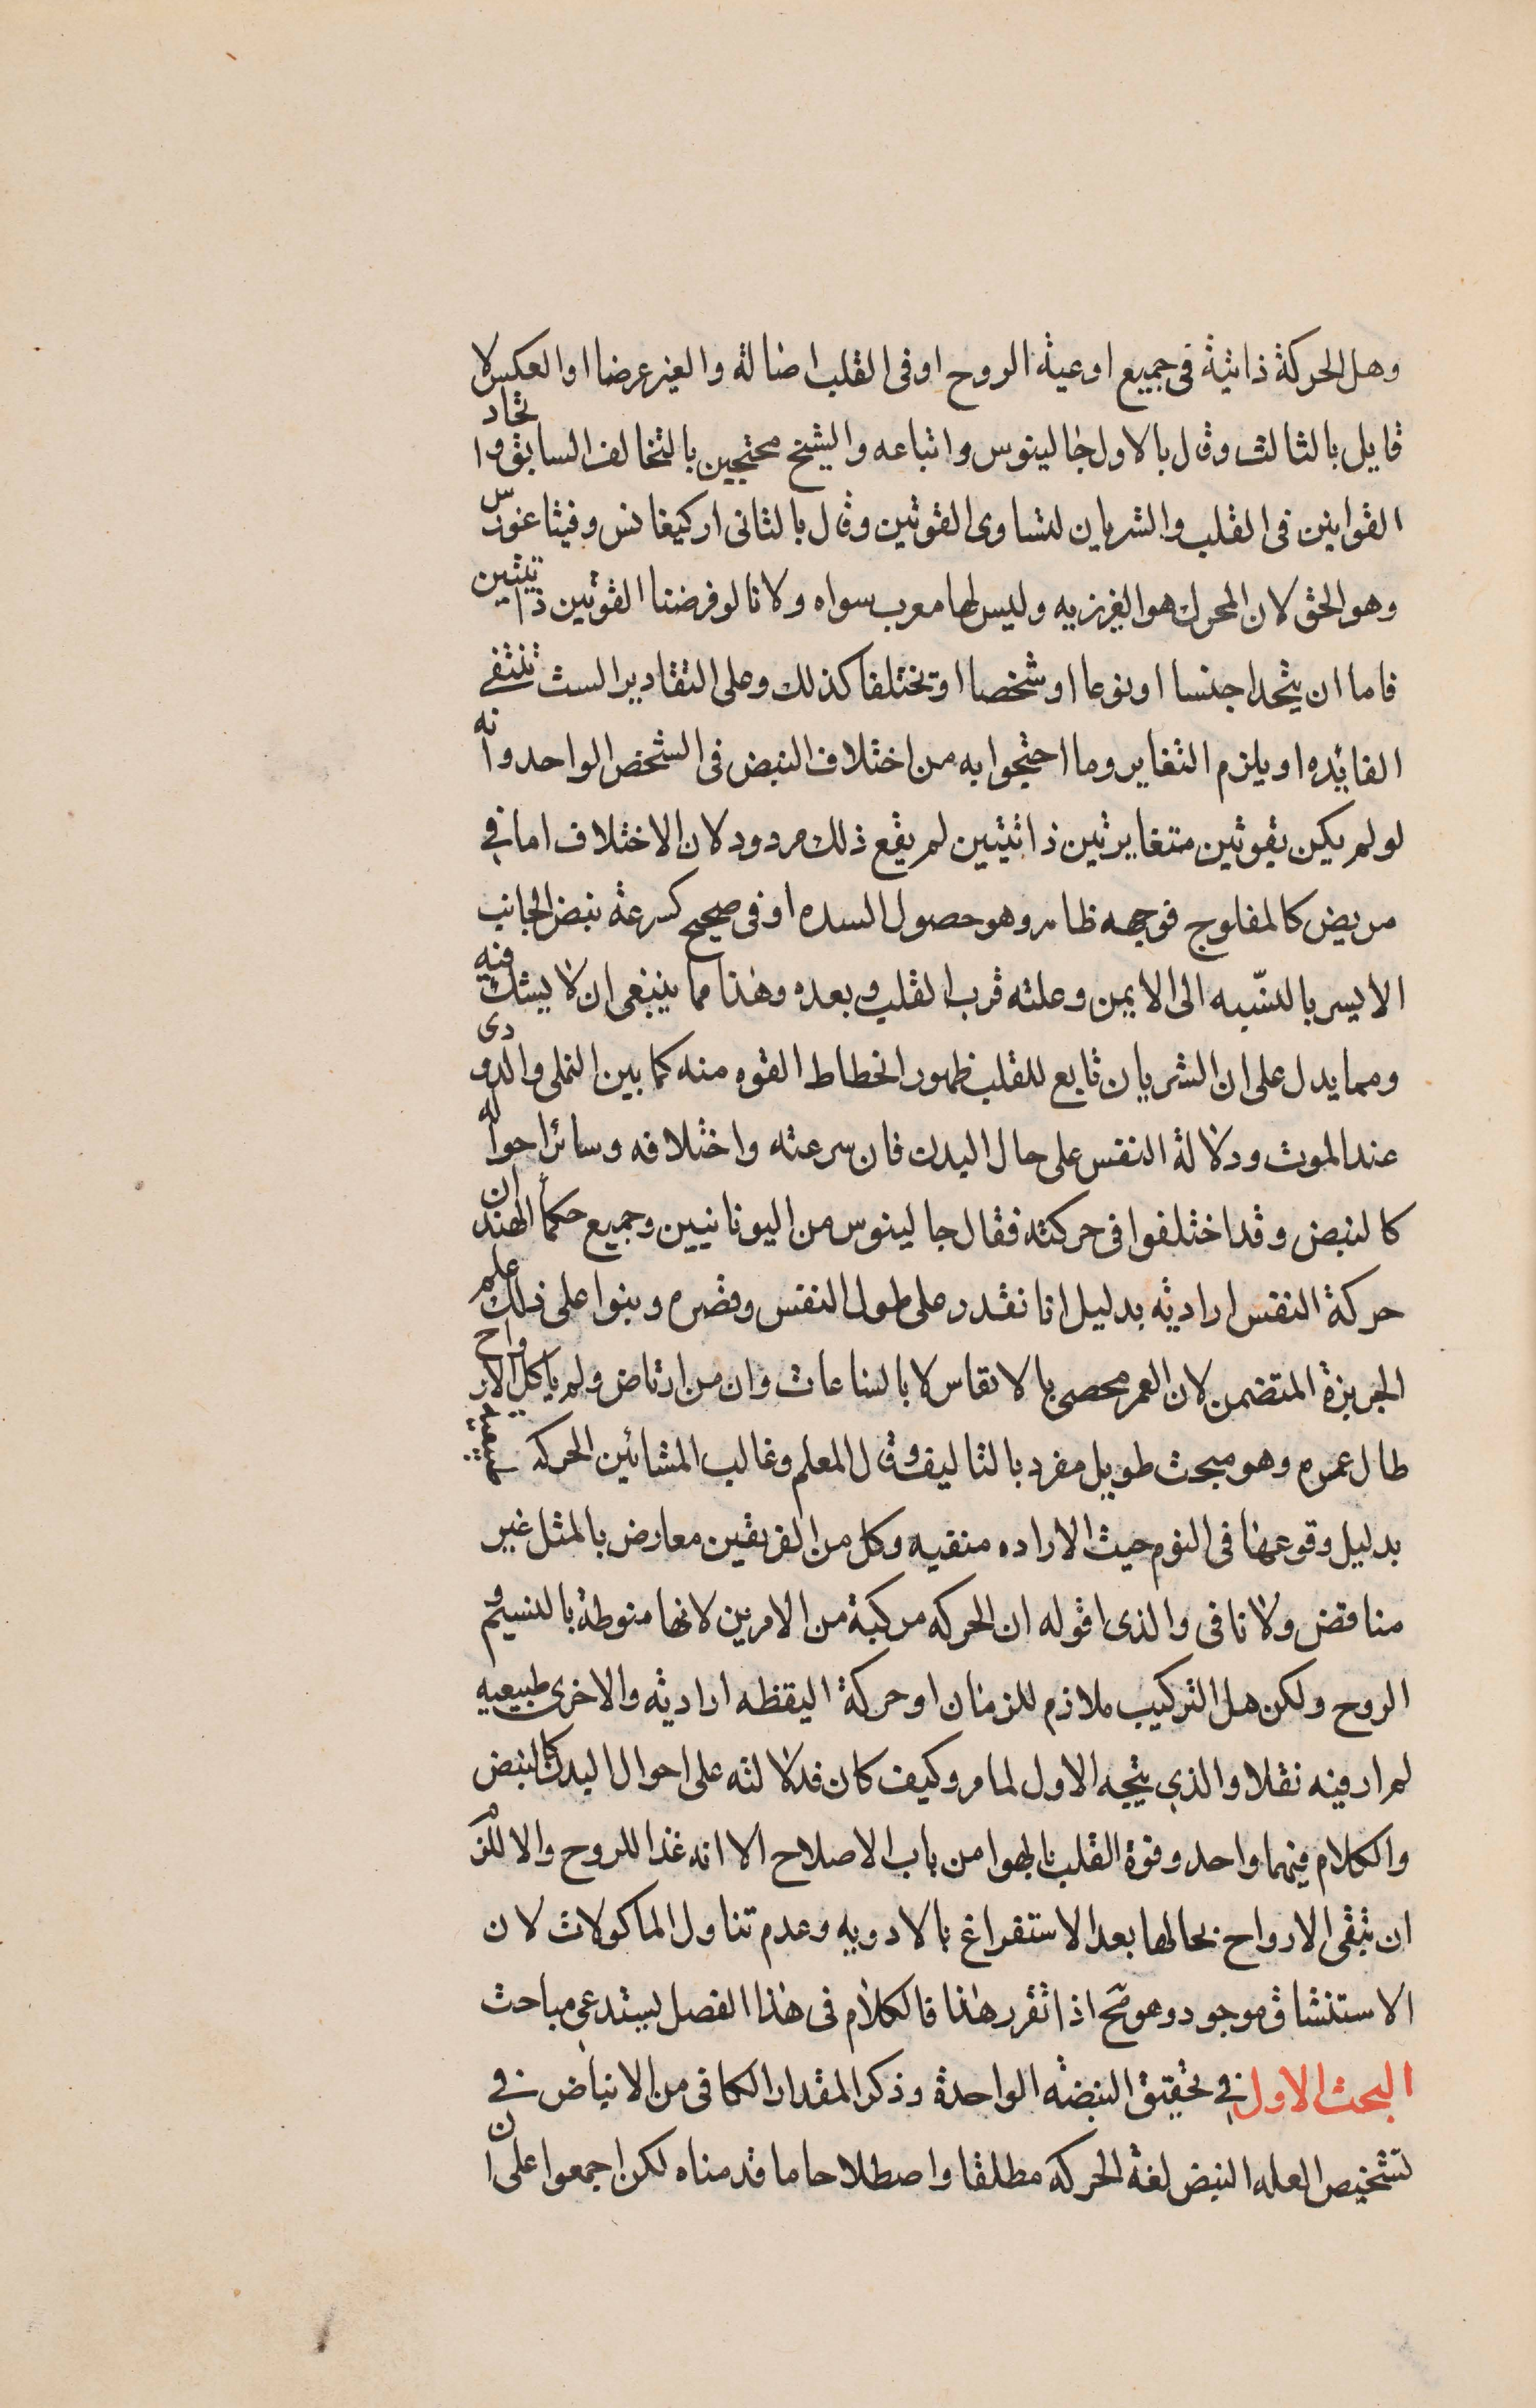 وهل الحركة ذاتية فى جميع اوعية الروح او فى القلب اصالة والغير عرضا او العكس لا
قايل بالثالث وقال بالاول جالينوس واتباعه والشيخ محتجين بالتخالف السابق واتحاد
القوانين فى القلب والشريان لتساوى القوتين وقال بالثانى اركيغانس وفيثاغورس
وهو الحق لان المحرك هو الغريزيه وليس لها معرب سواه ولانا لو فرضنا القوتين ذاتيتين
فاما ان يتحدا جنسا او نوعا او شخصا او يختلفا كذلك وعلى التقادير الست تنتفى
الفائده او يلزم التغاير وما احتجوا به من اختلاف النبض فى الشخص الواحد وانه
لو لم يكن بقوتين متغايرتين ذاتيتين لم يقع ذلك مردود لان الاختلاف اما فى
مريض كالمفلوج فوجهه ظاهر وهو حصول السده او فى صحيح كسرعة نبض الجانب
الايسر بالنسبه الى الايمن وعلته قرب القلب وبعده وهذا مما ينبغى ان لا يشك فيه
ومما يدل على ان الشريان تابع للقلب ظهور انحطاط القوه منه كما بين النملى والدودى
عند الموت ودلالة النفس على حال البدن فان سرعته واختلافه وسائر احواله
كالنبض وقد اختلفوا فى حركته فقال جالينوس من اليونانيين وجميع حكمأ الهند ان
حركة النفس اراديه بدليل انا نقدر على طول النفس وقصره وبنوا على ذلك علم
الجريزة المتضمن لان العمر محصى بالانفاس لا بالساعات وان من ارتاض ولم ياكل الارواح
طال عمره وهو مبحث طويل مفرد بالتاليف وقال المعلم وغالب المشائين الحركه طبيعيه
بدليل وقوعها فى النوم حيث الاراده منفيه وكل من الفريقين معارض بالمثل غير
مناقض ولا نافى والذى اقوله ان الحركه مركبة من الامرين لانها منوطة بالنسيم و
الروح ولكن هل التركيب ملازم للزمان او حركة اليقظه اراديه والاخرى طبيعيه
لم ار فيه نقلا والذى يتجه الاول لما مر وكيف كان فدلالته على احوال البدن كالنبض
والكلام فيهما واحد وقوة القلب بالهوا من باب الاصلاح لا انه غذا للروح والا للزم
ان تبقى الارواح بحالها بعد الاستفراغ بالادويه وعدم تناول الماكولات لان
الاستنشاق موجود وهو مح اذا تقرر هذا فالكلام فى هذا الفصل يستدعى مباحث
البحث الاول فى تحقيق النبضه الواحدة وذكر المقدار الكافى من الانباض فى
تشخيص العله النبض لغة الحركه مطلقا واصطلاحا ما قدمناه لكن اجمعوا على ان